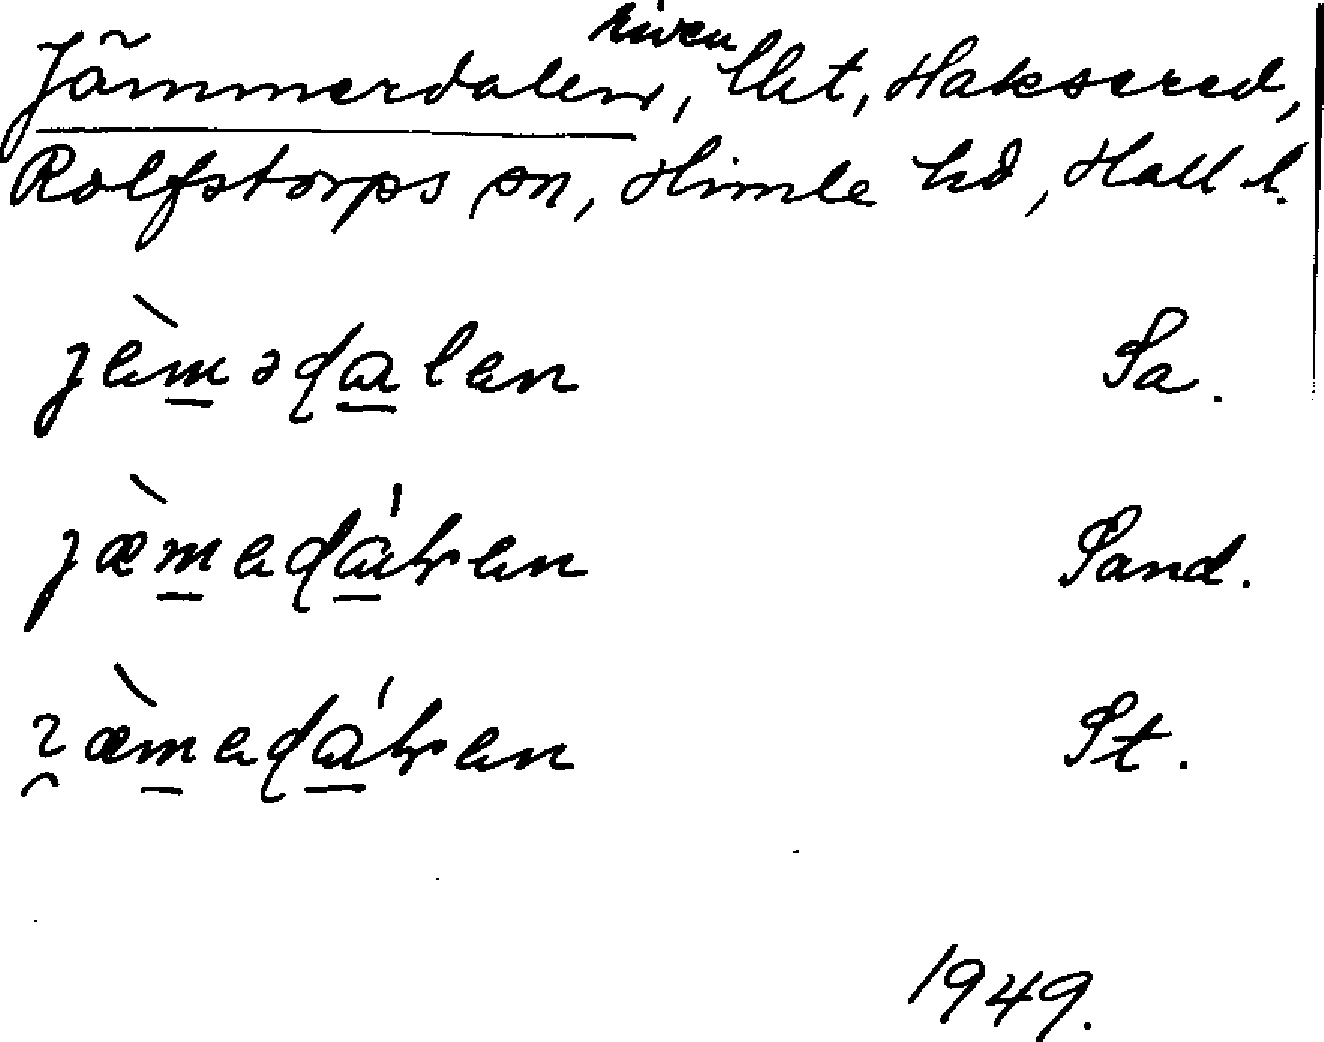 Jämmerdalen, riven lht, Haksered,
Rolfstorps sn, Himle hd, Hall l.
jèmədalen Sa.
jæ̀medáłen Sand.
æ̀medáłen St.
1949.